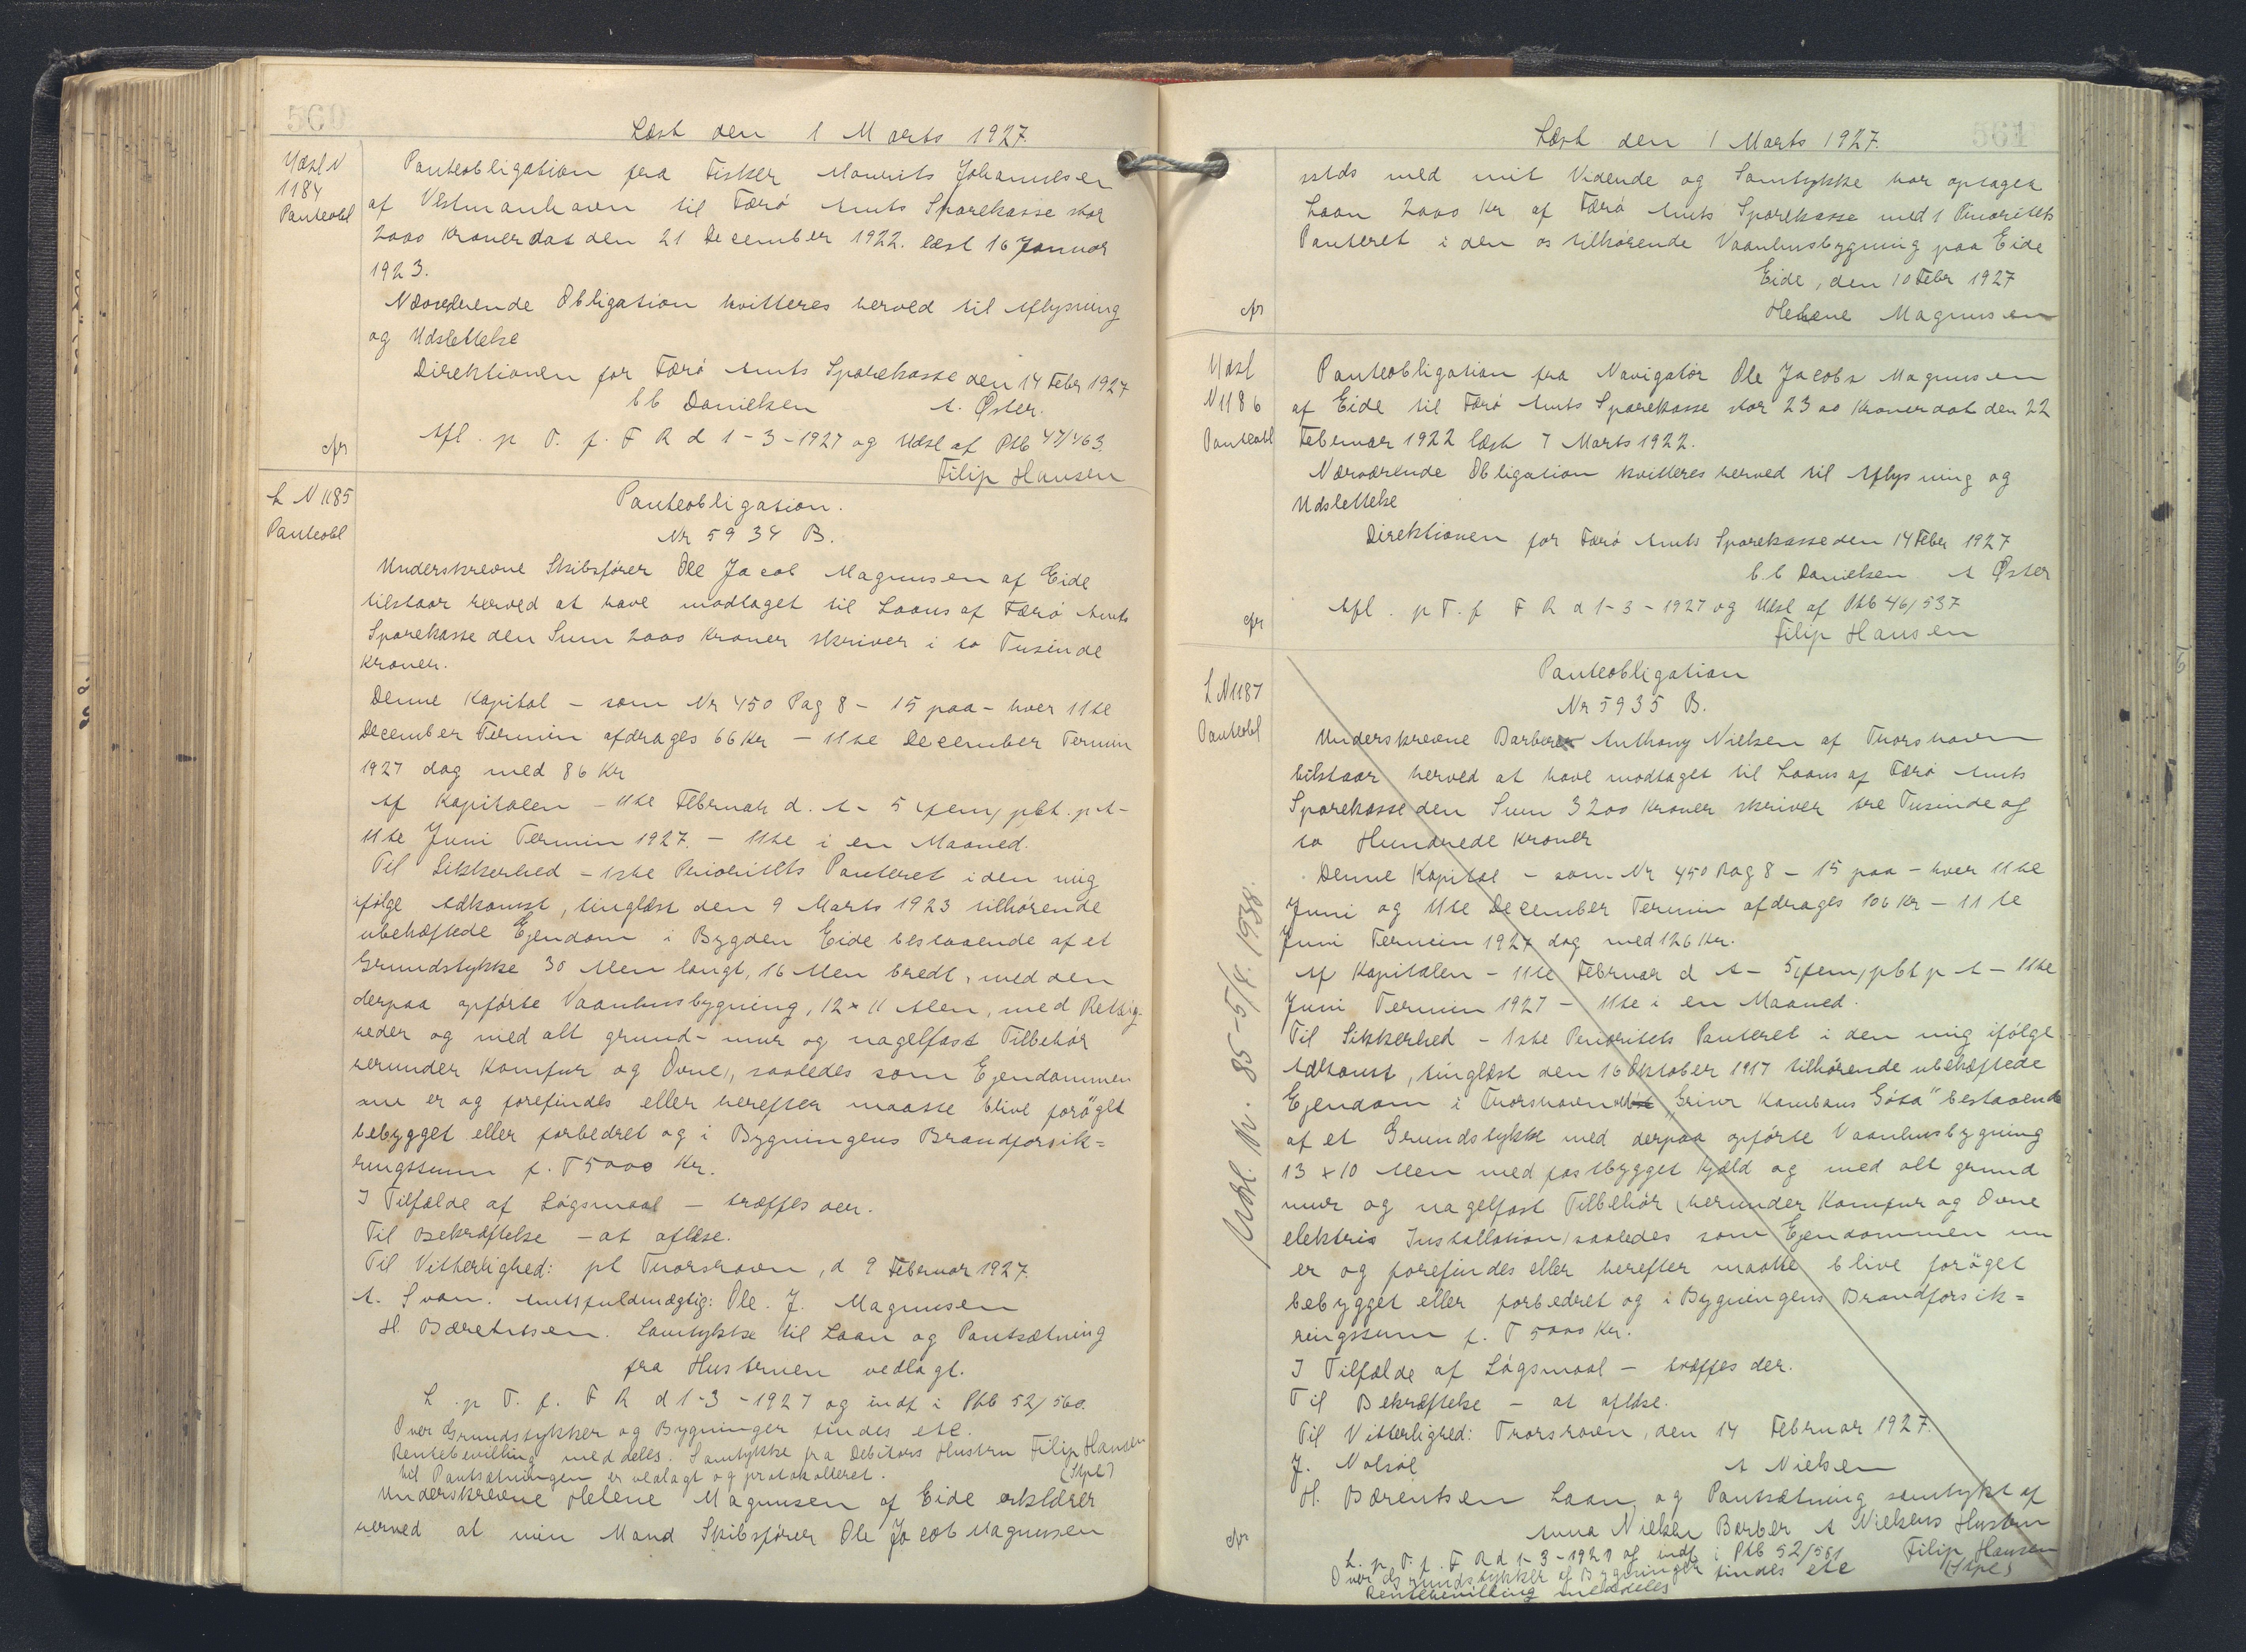 560
Læst den 1 Marts 1927.
Udsl N
1184
Panteobl
Panteobligation fra Fisker Mourits Johannesen
af Vestmanhavn til Færø Amts Sparekasse stor
2000 Kroner dat den 21 December 1922. læst 16 Januar
1923.
Nærværende Obligation kvitteres herved til Aflysning
og Udslettelse
Direktionen for Færø Amts Sparekasse den 14 Febr 1927
C C Danielsen A. Øster.
Afl. p T. f. F R d 1-3-1927 og Udsl af Ptb 47/463.
cfr
Filip Hansen
L N 1185
Panteobl
Panteobligation.
Nr 5934 B.
Underskrevne Skibsfører Ole Jacob Magnussen af Eide
tilstaar herved at have modtaget til Laans af Færø Amts
Sparekasse den Sum 2000 Kroner skriver i to Tusinde
Kroner.
Denne Kapital - som Nr 450 Pag 8 - 15 paa - hver 11te
December Termin afdrages 66 Kr - 11te December Termin
1927 dog med 86 Kr
Af Kapitalen - 11te Februar d. A - 5 (fem) pCt. p A -
11te Juni Termin 1927. - 11te i en Maaned.
Til Sikkerhed - 1ste Prioritets Panteret i den mig
ifølge Adkomst, tinglæst den 9 Marts 1923 tilhørende
ubehæftede Ejendom i Bygden Eide bestaaende af et
Grundstykke 30 Alen langt, 16 Alen bredt, med den
derpaa opførte Vaanhusbygning, 12 x 11 Alen, med Rettig-
heder og med alt grund- mur og nagelfast Tilbehør
herunder Komfur og Ovne, saaledes som Ejendommen
nu er og forefindes eller herefter maatte blive forøget
bebygget eller forbedret og i Bygningens Brandforsik=
ringssum p. T 5000 Kr.
I Tilfælde af Søgsmaal - træffes der.
Til Bekræftelse - at aflæse.
Til Vitterlighed: pt Thorshavn, d 9 Februar 1927.
A. Svan. Amtsfuldmægtig: Ole. J. Magnussen
H. Bærentsen. Samtykke til Laan og Pantsætning
fra Hustruen vedlagt.
L. p T. f. F R d 1-3-1927 og indf i Ptb 52/560.
Over Grundstykker og Bygninger findes etc.
Rentebevilling meddeles. Samtykke fra Debitors Hustru Filip Hansen
til Pantsætningen er vedlagt og protokolleret. (Stpl)
Underskrevne Helene Magnussen af Eide erklærer
herved at min Mand Skibsfører Ole Jacob Magnussen
561
Læst den 1 Marts 1927.
sstds med mit Vidende og Samtykke har optaget
Laan 2000 Kr af Færø Amts Sparekasse med 1 Prioritets
Panteret i den os tilhørende Vaanhusbygning paa Eide
Eide, den 10 Febr 1927
cfr
Helene Magnussen
Udsl
N 1186
Panteobl
Panteobligation fra Navigatør Ole Jacobs Magnussen
af Eide til Færø Amts Sparekasse stor 2300 Kroner dat den 22
Februar 1922 læst 7 Marts 1922.
Nærværende Obligation kvitteres herved til Aflysning og
Udslettelse
Direktionen for Færø Amts Sparekasse den 14 Febr 1927
C. C Danielsen A Øster
Afl. p T. f F R d 1-3-1927 og Udsl af Ptb 46/537
cfr
Filip Hansen
L N 1187
Panteobl
Panteobligation
Nr 5935 B.
Underskrevne Barber Anthony Nielsen af Thorshavn
tilstaar herved at have modtaget til Laans af Færø Amts
Sparekasse den Sum 3200 Kroner skriver tre Tusinde og
to Hundrede Kroner
Denne Kapital - som Nr 450 Pag 8 - 15 paa - hver 11te
Juni og 11te December Termin afdrages 106 Kr - 11te
Juni Termin 1927 dog med 126 Kr.
Af Kapitalen - 11te Februar d A - 5 (fem) pCt p A - 11te
Juni Termin 1927 - 11te i en Maaned.
Til Sikkerhed - 1ste Prioritets Panteret i den mig ifølge
Adkomst, tinglæst den 16 Oktober 1917 tilhørende ubehæftede
Ejendom i Thorshavn „Grimr Kambans Gøta" bestaaende
af et Grundstykke med derpaa opførte Vaanhusbygning
13 x 10 Alen med fastbygget Kjæld og med alt grund
mur og nagelfast Tilbehør (herunder Komfur og Ovne
elektris Installation) saaledes som Ejendommen nu
er og forefindes eller herefter maatte blive forøget
bebygget eller forbedret og i Bygningens Brandforsik=
ringssum p. T 5000 Kr.
I Tilfælde af Søgsmaal - træffes der.
Til Bekræftelse - at aflæse.
Til Vitterlighed: Thorshavn, den 14 Februar 1927.
J. Nolsøe A Nielsen
H. Bærentsen Laan og Pantsætning samtykt af
Anna Nielsen Barber A Nielsens Hustru
cfr
L. p. T. f. F R d 1-3-1927 og indf i Ptb 52/561 Filip Hansen
Over Grundstykker og Bygninger findes etc (Stpl)
Rentebevilling meddeles
Udsl. Nr. 85-5/4. 1938.